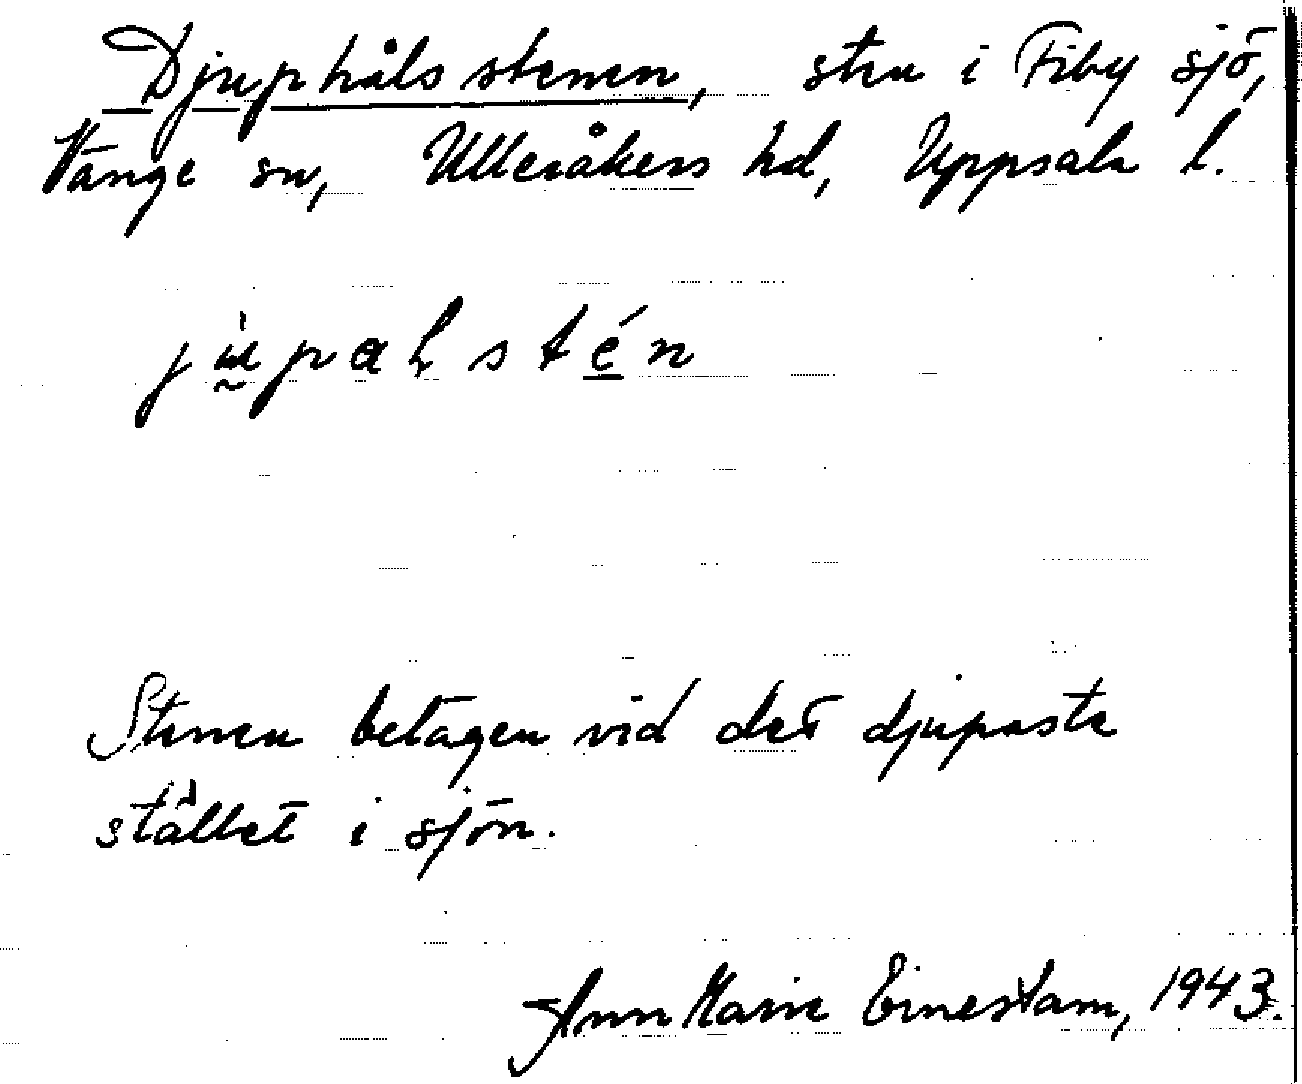 Djuphålsstenen, sten i Fiby sjö,
Vänge sn, Ulleråkers hd, Uppsala l.
jùpahstén
Stenen belägen vid det djupaste
stället i sjön.
Ann Marie Einestam, 1943.